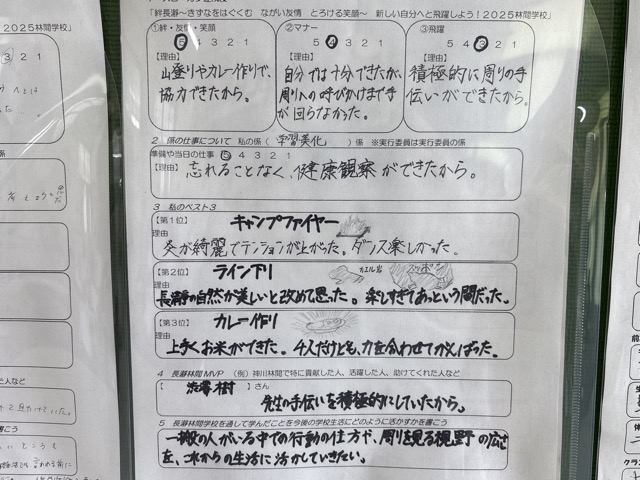 「絆長瀞～きずなをはぐくむ ながい友情 とろける笑顔～ 新しい自分へと飛躍しよう！2025林間学校」
①絆・友情・笑顔
5 4 3 2 1
【理由】
山登りやカレー作りで、
協力できたから。
②マナー
5 4 3 2 1
【理由】
自分では十分できたが、
周りへの呼びかけまで手
が回らなかった。
③飛躍
5 4 3 2 1
【理由】
積極的に周りの手
伝いができたから。
2 係の仕事について 私の係（ 学習美化 ）係 ※実行委員は実行委員の係
準備や当日の仕事 5 4 3 2 1
【理由】 忘れることなく、健康観察ができたから。
3 私のベスト3
【第1位】 キャンプファイヤー
理由
炎が綺麗でテンションが上がった。ダンス楽しかった。
【第2位】 ライン下り
カエル岩
理由
長瀞の自然が美しいと改めて思った。楽しすぎてあっという間だった。
【第3位】 カレー作り
理由
上手くお米ができた。4人だけども、力を合わせてがんばった。
4 長瀞林間MVP （例）神川林間で特に貢献した人、活躍した人、助けてくれた人など
樹 さん
先生の手伝いを積極的にしていたから。
5 長瀞林間学校を通して学んだことを今後の学校生活にどのように活かすかを書こう
一般の人がいる中での行動の仕方や、周りを見る視野の広さ
を、これからの生活に活かしていきたい。